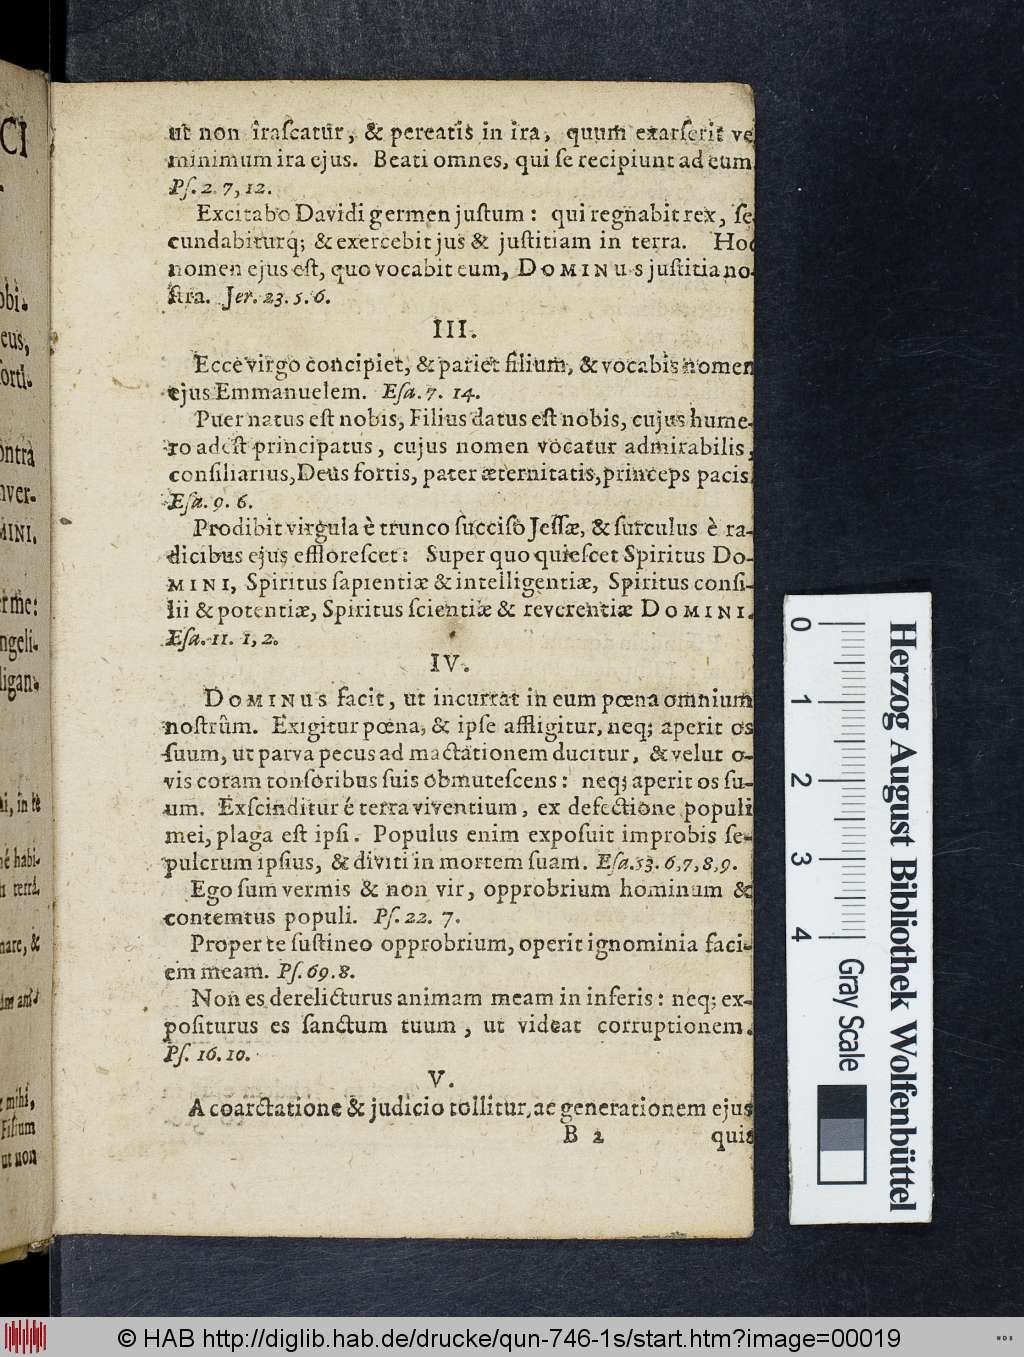 CI
obi.
eus,
forti-
ontra
nver-
MINI.
erme:
ngeli-
ligan-
ni, in te
né habi-
terrâ.
mare, &
mihi,
Filium
ut non
ut non irascatur, & pereatis in ira, quum exarserit ve
minimum ira ejus. Beati omnes, qui se recipiunt ad eum
Ps. 2. 7, 12.
Excitabo Davidi germen justum: qui regnabit rex, se-
cundabiturq; & exercebit jus & justitiam in terra. Hoc
nomen ejus est, quo vocabit eum, DOMINUS justitia no-
stra. Jer. 23. 5. 6.
III.
Ecce virgo concipiet, & pariet filium, & vocabis nomen
ejus Emmanuelem. Esa. 7. 14.
Puer natus est nobis, Filius datus est nobis, cujus hume-
ro adest principatus, cujus nomen vocatur admirabilis,
consiliarius, Deus fortis, pater æternitatis, princeps pacis
Esa. 9. 6.
Prodibit virgula è trunco succiso Jessæ, & surculus è ra-
dicibus ejus efflorescet: Super quo quiescet Spiritus DO-
MINI, Spiritus sapientiæ & intelligentiæ, Spiritus consi-
lii & potentiæ, Spiritus scientiæ & reverentiæ DOMINI.
Esa. 11. 1, 2.
IV.
DOMINUS facit, ut incurrat in eum pœna omnium
nostrûm. Exigitur pœna, & ipse affligitur, neq; aperit os
suum, ut parva pecus ad mactationem ducitur, & velut o-
vis coram tonsoribus suis obmutescens: neq; aperit os su-
um. Exscinditur é terra viventium, ex defectione populi
mei, plaga est ipsi. Populus enim exposuit improbis se-
pulcrum ipsius, & diviti in mortem suam. Esa. 53. 6, 7, 8, 9.
Ego sum vermis & non vir, opprobrium hominum &
contemtus populi. Ps. 22. 7.
Proper te sustineo opprobrium, operit ignominia faci-
em meam. Ps. 69. 8.
Non es derelicturus animam meam in inferis: neq; ex-
positurus es sanctum tuum, ut videat corruptionem.
Ps. 16. 10.
V.
A coarctatione & judicio tollitur, ac generationem ejus
B 2 quis
0 1 2 3 4 Gray Scale
Herzog August Bibliothek Wolfenbüttel
© HAB http://diglib.hab.de/drucke/qun-746-1s/start.htm?image=00019